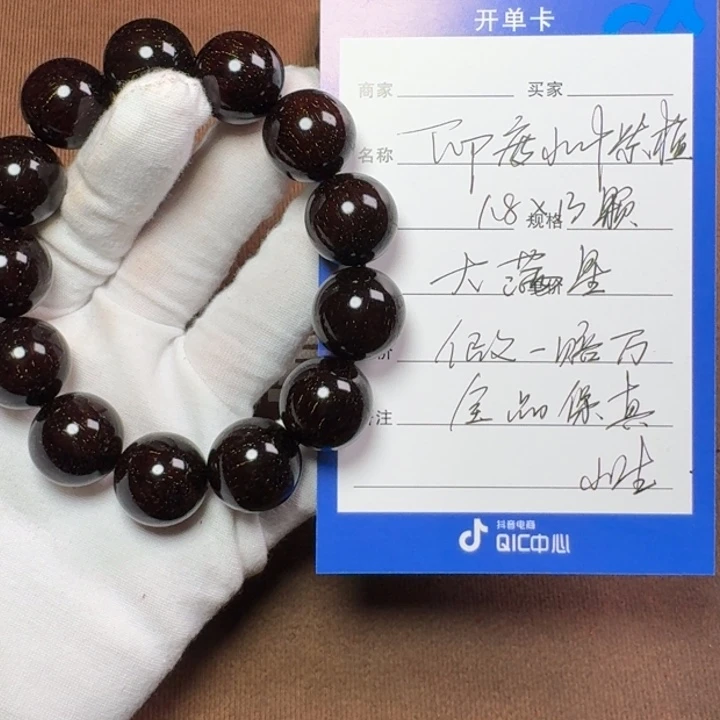 开单卡
商家 买家
名称 印度小叶紫檀
1.8×13颗
规格
大满星
假一赔万
注 全品保真
小生
抖音电商
QIC中心